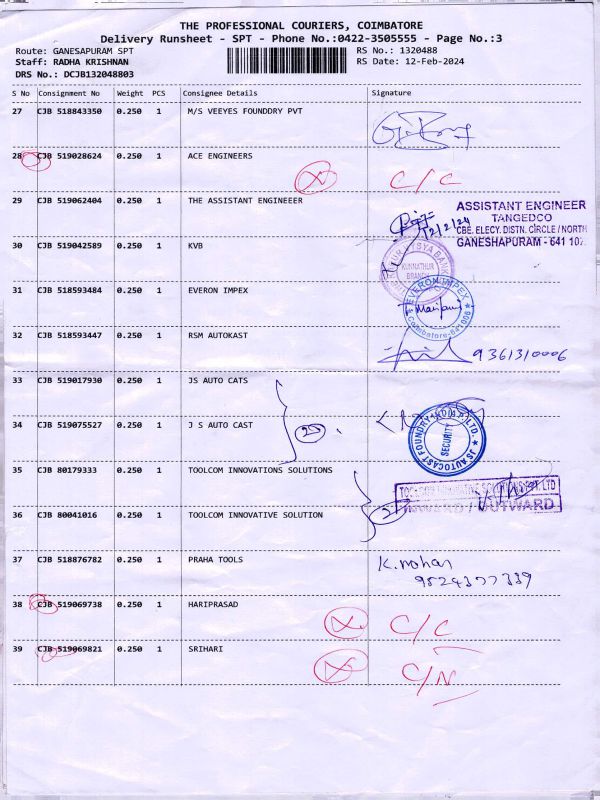 THE PROFESSIONAL COURIERS, COIMBATORE
Delivery Runsheet - SPT - Phone No.:0422-3505555 - Page No.:3
Route: GANESAPURAM SPT
RS No.: 1320488
Staff: RADHA KRISHNAN
RS Date: 12-Feb-2024
DRS No.: DCJB132048803
S No Consignment No Weight PCS Consignee Details Signature
27 CJB 518843350 0.250 1 M/S VEEYES FOUNDDRY PVT
28 CJB 519028624 0.250 1 ACE ENGINEERS C/C
29 CJB 519062404 0.250 1 THE ASSISTANT ENGINEEER
12/2/24
ASSISTANT ENGINEER
TANGEDCO
CBE. ELECY. DISTN. CIRCLE / NORTH
GANESHAPURAM - 641 107.
30 CJB 519042589 0.250 1 KVB
VYSYA BANK
KUNNATHUR
BRANCH
31 CJB 518593484 0.250 1 EVERON IMPEX
EVERON IMPEX
Coimbatore-641006
32 CJB 518593447 0.250 1 RSM AUTOKAST
9361310006
33 CJB 519017930 0.250 1 JS AUTO CATS
34 CJB 519075527 0.250 1 J S AUTO CAST
JS AUTOCAST FOUNDRY INDIA LTD.
SECURITY
35 CJB 80179333 0.250 1 TOOLCOM INNOVATIONS SOLUTIONS
INWARD / OUTWARD
36 CJB 80041016 0.250 1 TOOLCOM INNOVATIVE SOLUTION
2
37 CJB 518876782 0.250 1 PRAHA TOOLS
K. mohan
9524377339
38 CJB 519069738 0.250 1 HARIPRASAD C/C
39 CJB 519069821 0.250 1 SRIHARI C/N